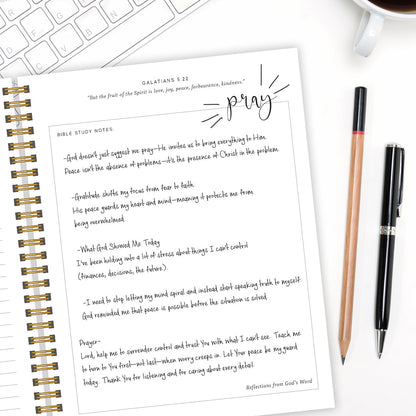 GALATIANS 5:22
"But the fruit of the Spirit is love, joy, peace, forbearance, kindness."
pray
BIBLE STUDY NOTES:
-God doesn't just suggest we pray—He invites us to bring everything to Him.
Peace isn't the absence of problems—it's the presence of Christ in the problem.
-Gratitude shifts my focus from fear to faith.
His peace guards my heart and mind—meaning it protects me from
being overwhelmed.
-What God Showed Me Today
I've been holding onto a lot of stress about things I can't control
(finances, decisions, the future).
-I need to stop letting my mind spiral and instead start speaking truth to myself.
God reminded me that peace is possible before the situation is solved.
Prayer-
Lord, help me to surrender control and trust You with what I can't see. Teach me
to turn to You first—not last—when worry creeps in. Let Your peace be my guard
today. Thank You for listening and for caring about every detail.
Reflections from God's Word